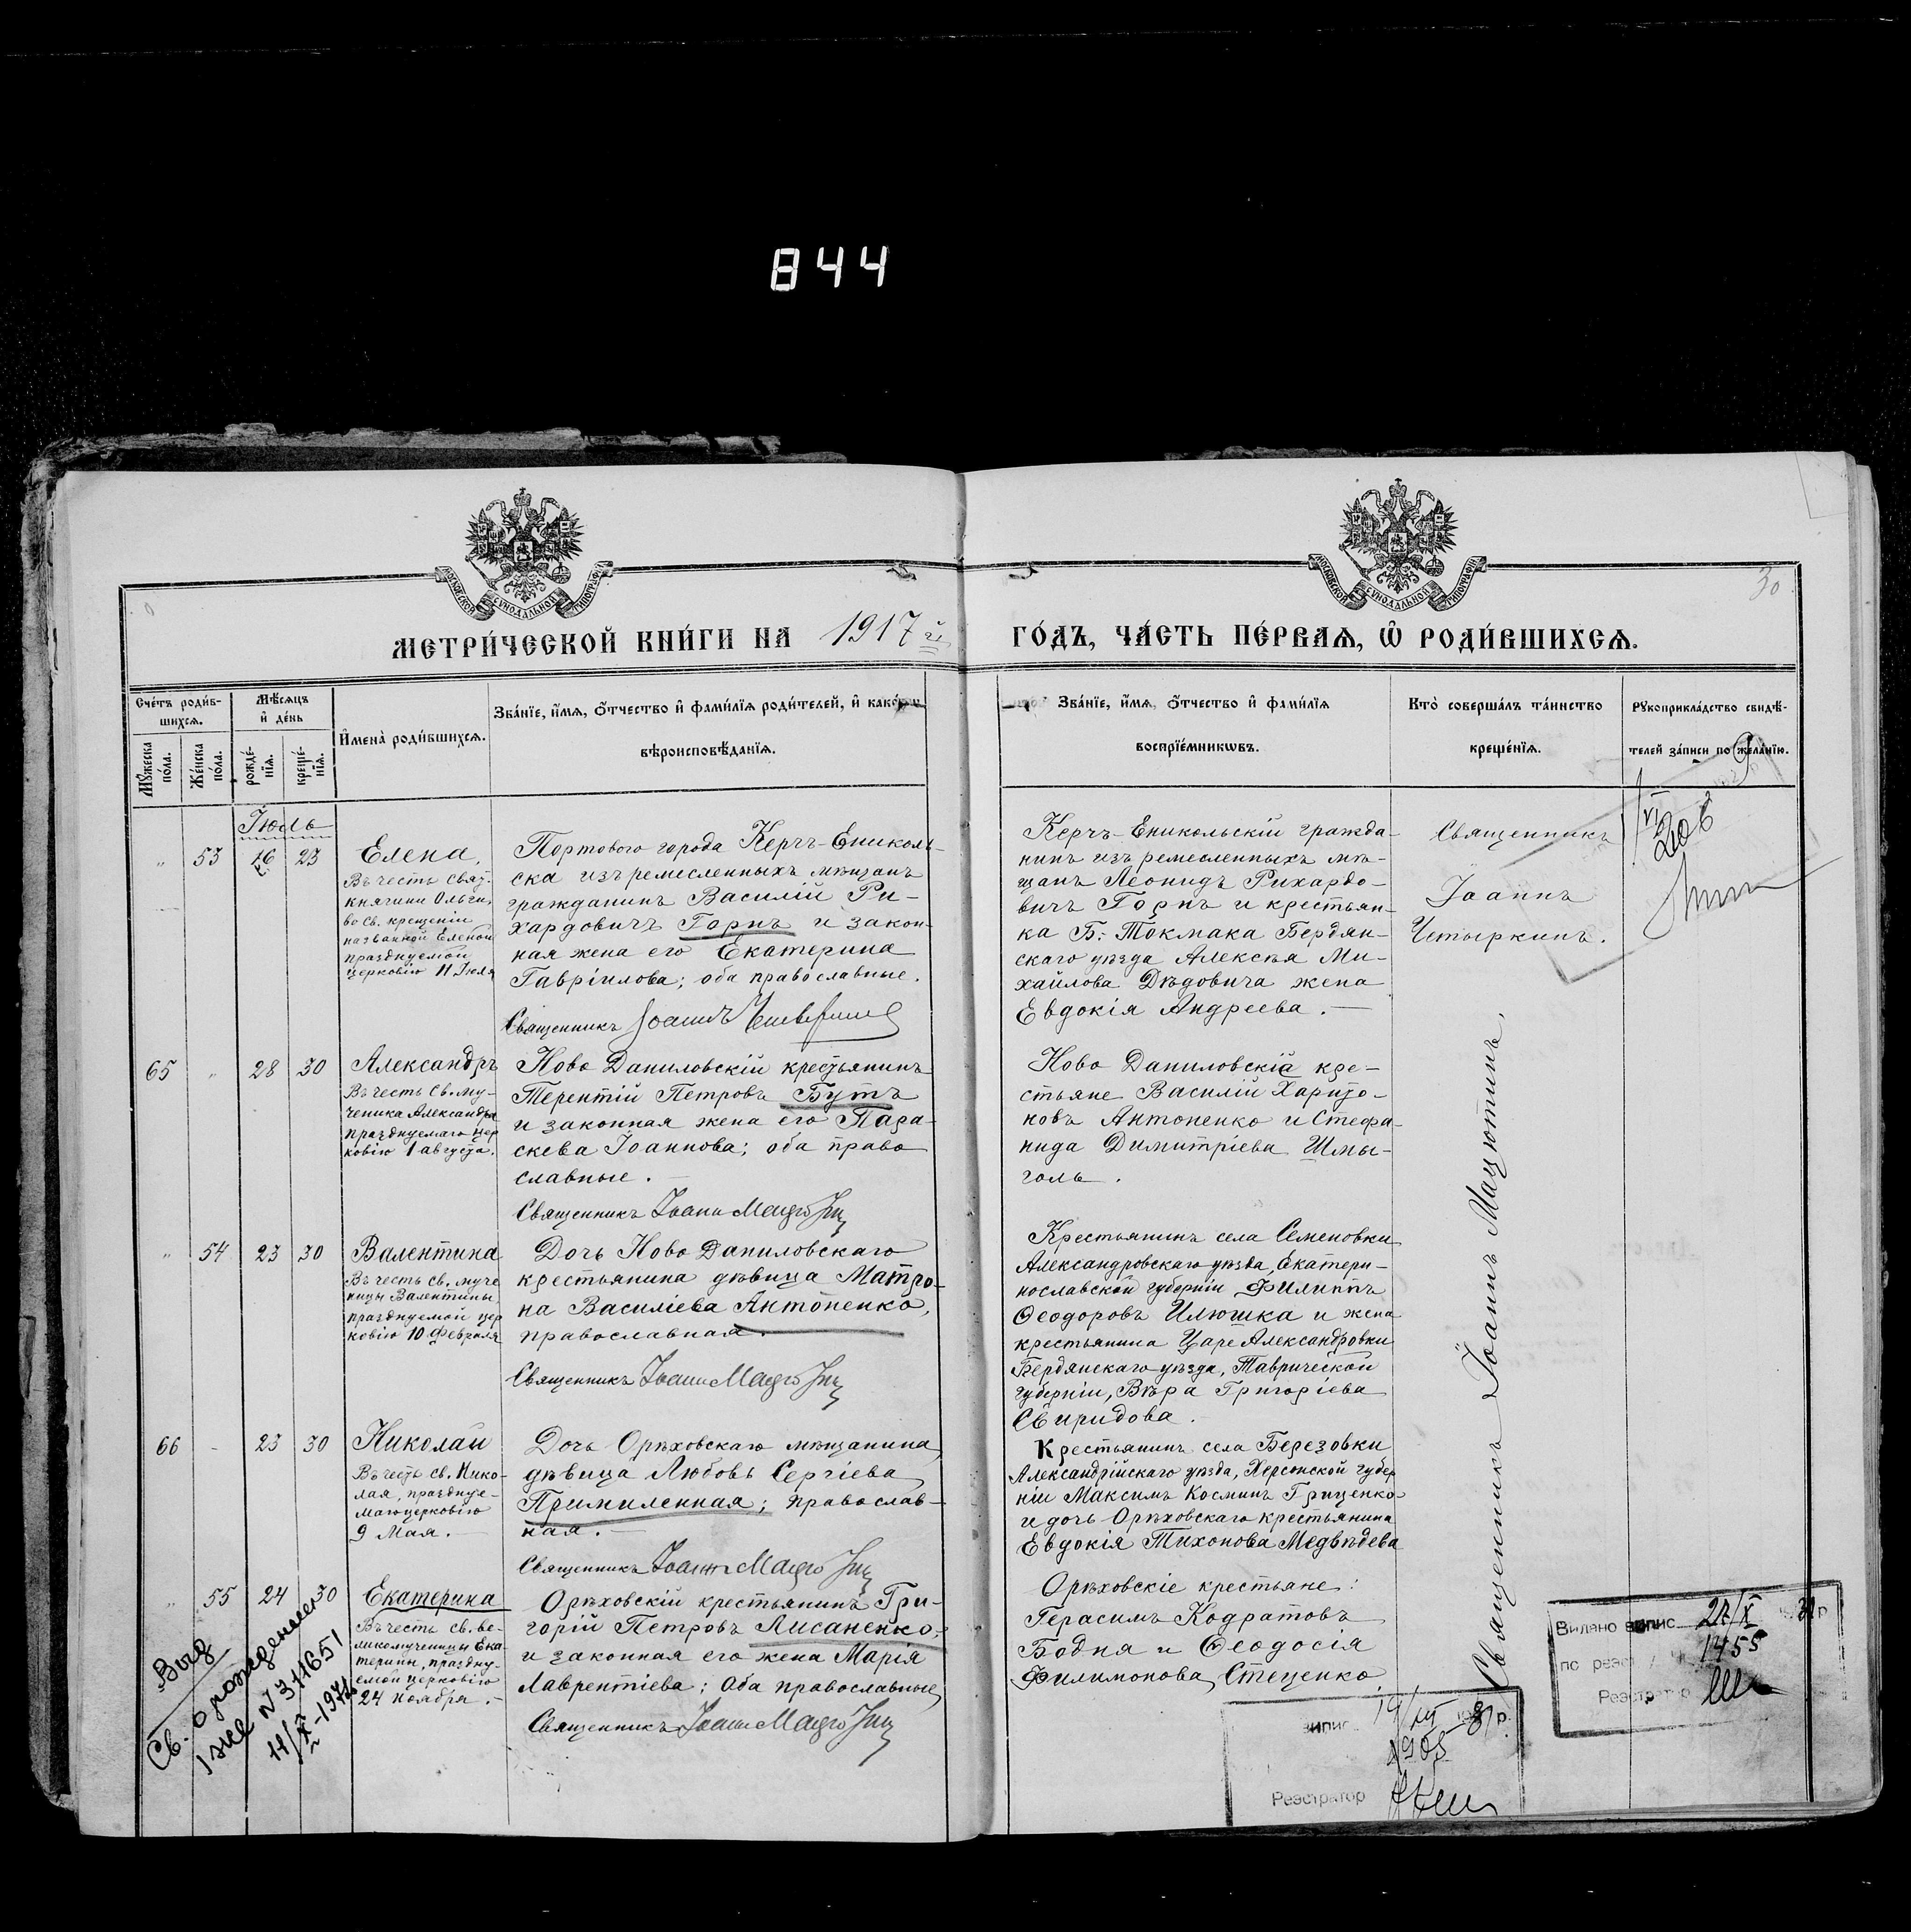 844
МОСКОВСКОЙ СѴНОДАЛЬНОЙ ТИПОГРАФІИ
МОСКОВСКОЙ СѴНОДАЛЬНОЙ ТИПОГРАФІИ
30
МЕТРИ́ЧЕСКОЙ КНИ́ГИ НА 1917 й
ГО́ДЪ, ЧА́СТЬ ПЕ́РВАѦ, Ѡ РОДИ́ВШИХСѦ.
Сче́тъ роди́в-
шихсѧ.
Мꙋ́жеска
пола.
Же́нска
по́ла.
Мѣ́сѧцъ
и де́нь
рожде́-
нїѧ.
креще́-
нїѧ.
Имена̀ роди́вшихсѧ.
Зва́нїе, и́мѧ, о́тчество и фами́лїѧ роди́телей, и како́гѡ
вѣроисповѣ́данїѧ.
Зва́нїе, и́мѧ, о́тчество и фами́лїѧ
воспрїе́мникѡвъ.
Кто̀ соверша́лъ та́инство
креще́нїѧ.
Рꙋкоприкла́дство свидѣ́-
телей за́писи по жела́нїю.
Іюль
" 53 16 23
Елена,
Въ честь свят.
княгини Ольги,
во св. крещеніи
названной Еленой
празднуемой
церковію 11 Іюля
Портового города Керчъ-Ениколь-
ска изъ ремесленныхъ мѣщанъ
гражданинъ Василій Ри-
хардовичъ Горнъ и закон-
ная жена его Екатерина
Гавріилова; оба православные.
Священникъ Іоаннъ
Керчъ-Еникольскій гражда-
нинъ изъ ремесленныхъ мѣ-
щанъ Леонидъ Рихардо-
вичъ Горнъ и крестьян-
ка Б. Токмака Бердян-
скаго уѣзда Алексѣя Ми-
хайлова Дѣдовича жена
Евдокія Андреева.
Священникъ
Іоаннъ
Четыркинъ.
65 " 28 30
Александръ
Въ честь св. му-
ченика Александра
празднуемаго цер
ковію 1 августа.
Ново Даниловскій крестьянинъ
Терентій Петровъ Бутъ
и законная жена его Пара-
скева Іоаннова; оба право
славные.
Священникъ Іоаннъ Мацютинъ
Ново Даниловскіе кре-
стьяне Василій Харито-
новъ Антоненко и Стефа-
нида Димитріева Шмы-
голь.
" 54 23 30
Валентина
Въ честь св. муче
ницы Валентины
празднуемой цер
ковію 10 февраля
Дочь Ново Даниловскаго
крестьянина дѣвица Матро-
на Василіева Антоненко,
православная.
Священникъ Іоаннъ Мацютинъ
Крестьянинъ села Семеновки
Александровскаго уѣзда, Екатери-
нославской губерніи Филиппъ
Ѳеодоровъ Илюшка и жена
крестьянина Царе Александровки
Бердянскаго уѣзда, Таврической
губерніи, Вѣра Григоріева
Свиридова.
66 - 23 30
Николай
Въ честь св. Нико-
лая, праздну-
маго церковію
9 Мая.
Дочь Орѣховскаго мѣщанина,
дѣвица Любовь Сергіева
Примиленная; православ-
ная.
Священникъ Іоаннъ Мацютинъ
Крестьянинъ села Березовки
Александрійскаго уѣзда, Херсонской губер
ніи Максимъ Косминъ Гриценко
и дочь Орѣховскаго крестьянина
Евдокія Тихонова Медвѣдева
" 55 24 30
Екатерина
Въ честь св. ве-
ликомученицы Ека-
терины, праздну-
емой церковію
24 ноября.
Орѣховскій крестьянинъ Гри-
горій Петровъ Лисаненко,
и законная его жена Марія
Лаврентіева; оба православные
Священникъ Іоаннъ Мацютинъ
Орѣховскіе крестьяне:
Герасимъ Кодратовъ
Бодня и Ѳеодосія
Филимонова Стеценко
Священникъ Іоаннъ Мацютинъ.
Св. о рождении
Видано випис 21/X
по реєст 1455
Реєстратор
випис 19/III 1981р.
Реєстратор